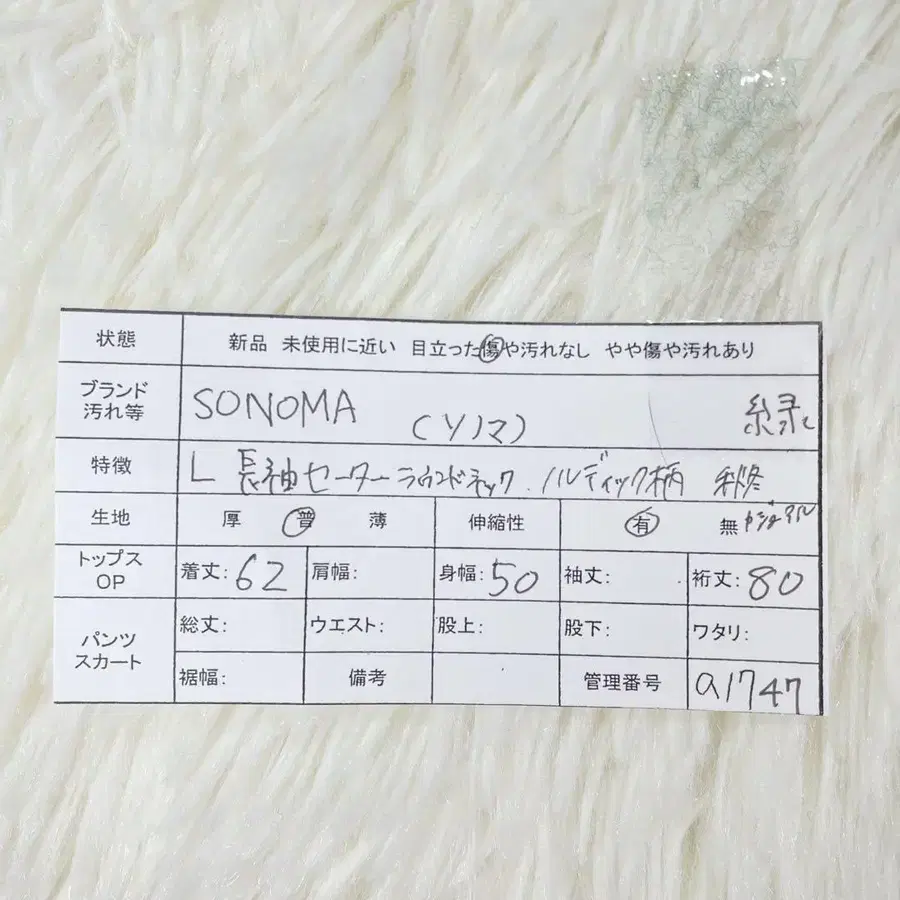 状態 新品 未使用に近い 目立った傷や汚れなし やや傷や汚れあり
ブランド 汚れ等 SONOMA (ソノマ) 緑
特徴 L 長袖セーター ラウンドネック、ノルディック柄 秋冬
カジュアル
生地 厚 普 薄 伸縮性 有 無
トップス OP 着丈:62 肩幅: 身幅:50 袖丈: 裄丈:80
パンツ スカート 総丈: ウエスト: 股上: 股下: ワタリ:
裾幅: 備考 管理番号 a1747